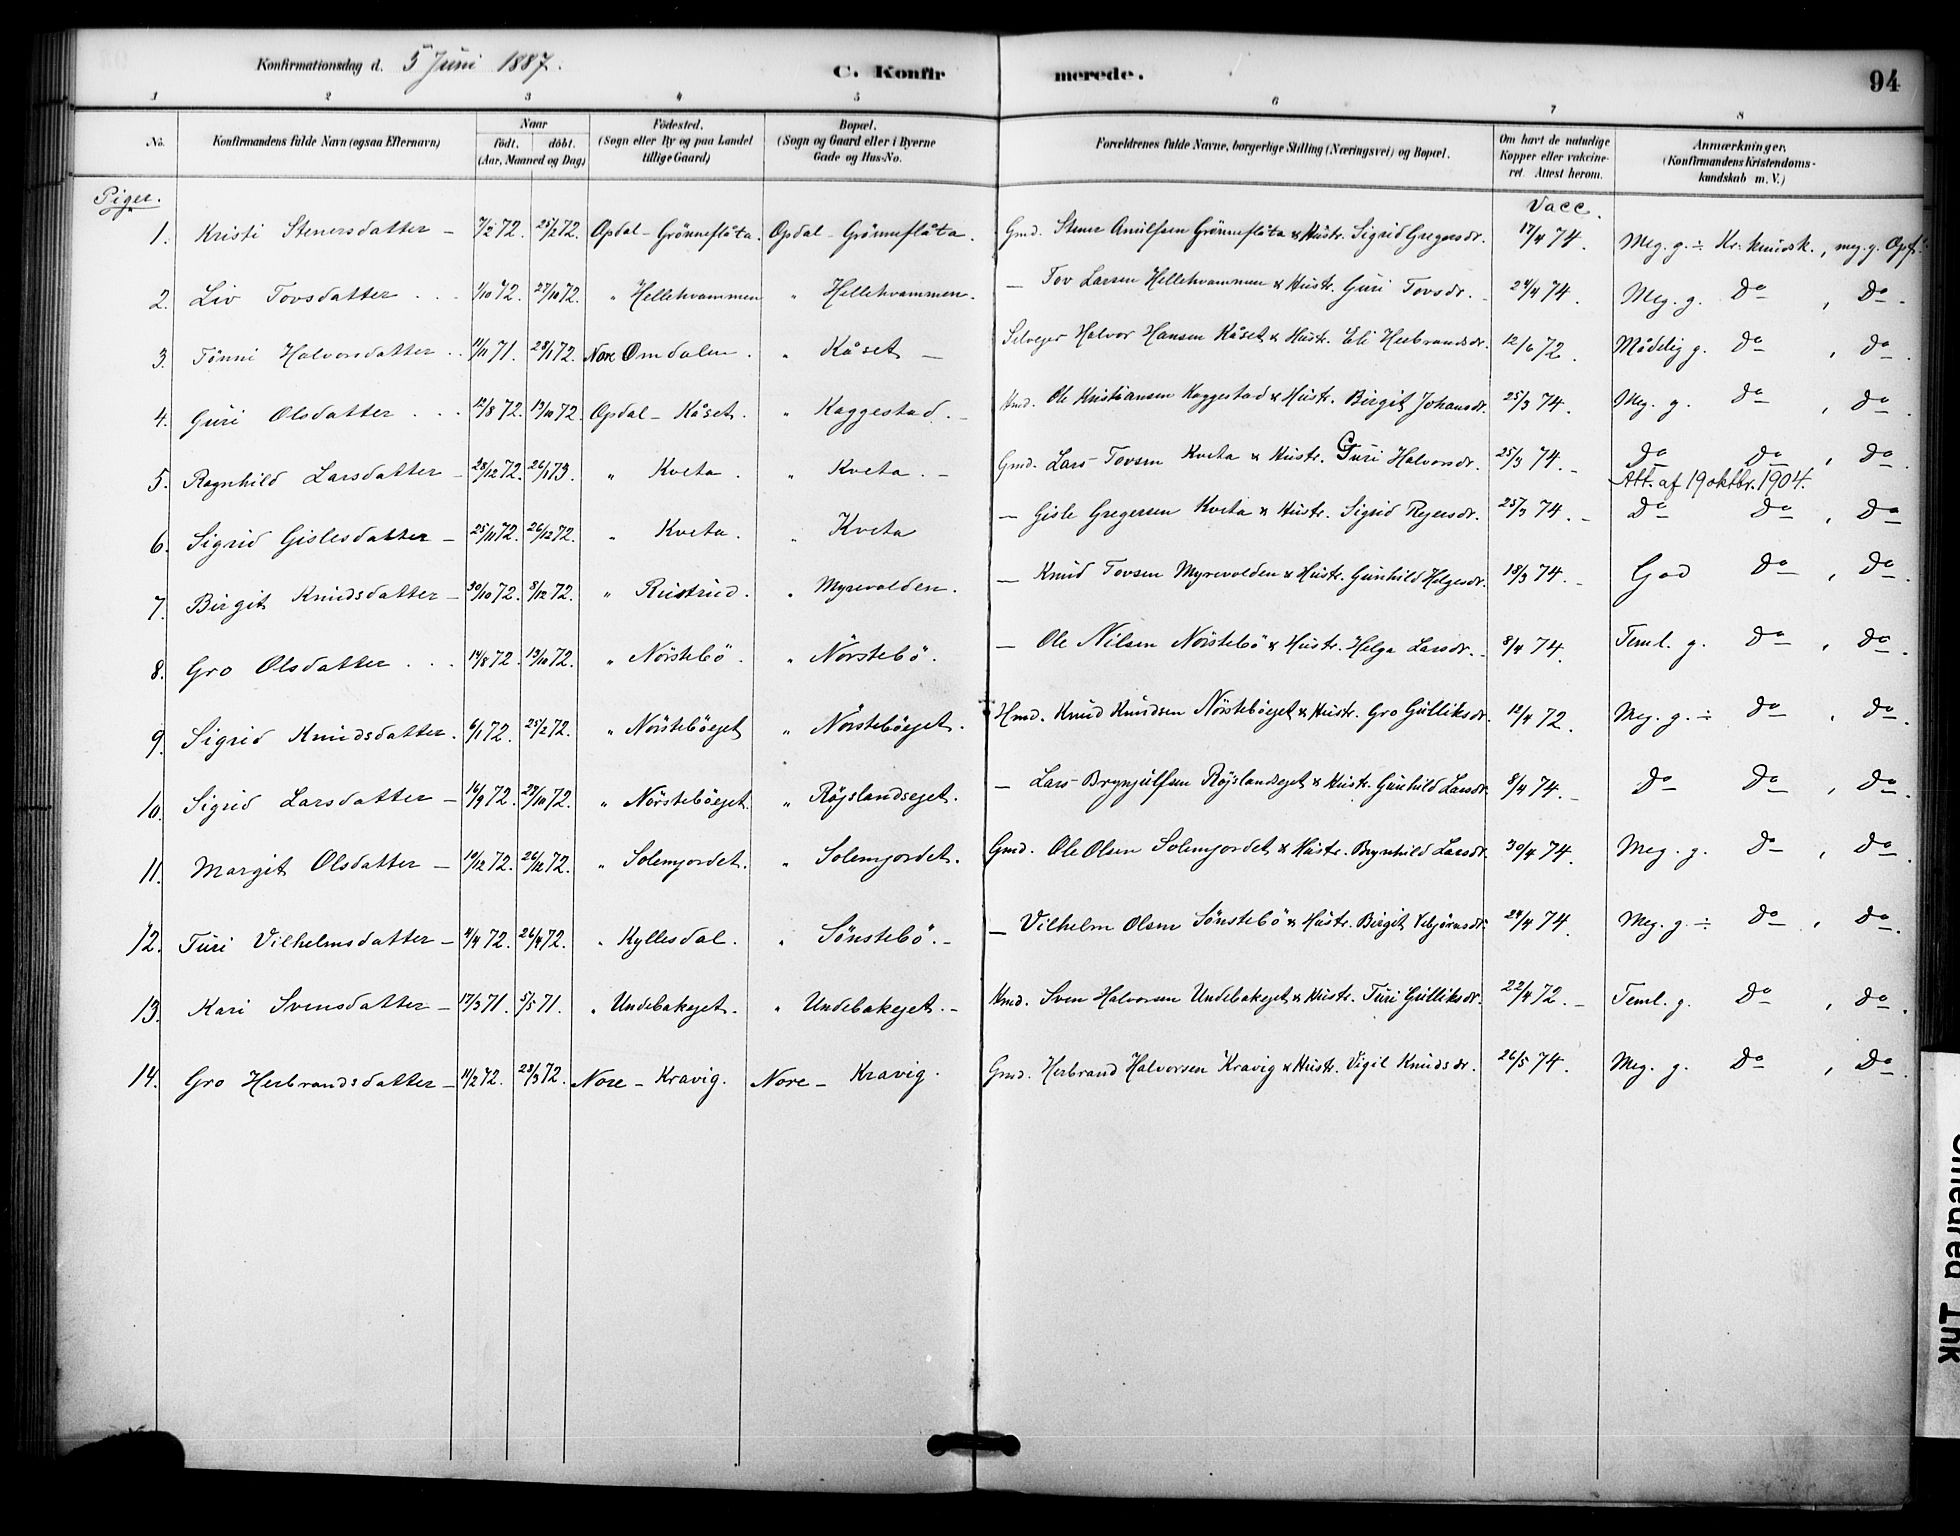 Konfirmationsdag d. 5 Juni 1887.
C. Konfirmerede.
94
1 2 3 4 5 6 7 8
No. Konfirmandens fulde Navn (ogsaa Efternavn) Naar født, døbt. (Aar, Maaned og Dag) Fødested. (Sogn eller By og paa Landet tillige Gaard) Bopæl. (Sogn og Gaard eller i Byerne Gade og Hus-No. Forældrenes fulde Navne, borgerlige Stilling (Næringsvei) og Bopæl. Om havt de naturlige Kopper eller vakcineret. Attest herom. Anmærkninger. (Konfirmandens Kristendomskundskab m. V.)
Piger. Vacc.
1. Kristi Stenersdatter – 7/2 72. 25/2 72. Opdal – Grönneflåta. Opdal – Grönneflåta. Gmd. Stener Anulfsen Grönneflåta & Hustr. Sigrid Gregersdr. 17/4 74. Meg. g. ÷ Kr. kundsk., meg. g. Opf.
2. Liv Tovsdatter . . . 1/10 72. 27/10 72. " Hellehvammen " Hellehvammen. – Tov Larsen Hellehvammen & Hustr. Guri Tovsdr. 24/4 74. Meg. g. Do , Do.
3. Tönni Halvorsdatter . . 11/11 71. 28/1 72. Nore Omdalen. " Kåset – Selveger Halvor Hansen Kåset & Hustr. Eli Herbrandsdr. 12/6 72. Mådelig g. Do , Do.
4. Guri Olsdatter . . . 12/8 72. 13/10 72. Opdal – Kåset. " Kaggestad. – Hmd. Ole Kristiansen Kaggestad & Hustr. Birgit Johansdr. 25/3 74. Meg. g. Do , Do.
5. Ragnhild Larsdatter – 28/12 72. 26/1 73. " Kveta. " Kveta. – Gmd. Lars Tovsen Kveta & Hustr. Guri Halvorsdr. 25/3 74. – Do Do , Do.
Att. af 19 oktbr. 1904.
6. Sigrid Gislesdatter – 25/11 72. 26/12 72. " Kveta. " Kveta – Gisle Gregersen Kveta & Hustr. Sigrid Reiersdr. 25/3 74. – Do Do , Do
7. Birgit Knudsdatter – 30/10 72. 8/12 72. " Rustrud. " Myrevolden. – Knud Tovsen Myrevolden & Hustr. Gunhild Helgesdr. 18/3 74. – God Do , Do.
8. Gro Olsdatter . . . 14/8 72. 13/10 72. " Nörstebö. " Nörstebö. – Ole Nilsen Nörstebö & Hustr. Helga Larsdr. – 8/4 74. Teml. g. Do , Do.
9. Sigrid Knudsdatter. 6/1 72. 25/2 72. " Nörsteböejet " Nörsteböejet. Hmd. Knud Knudsen Nörsteböejet & Hustr. Gro Gulliksdr. 12/4 72. Meg. g. ÷ Do , Do.
10. Sigrid Larsdatter – 16/9 72. 27/10 72. " Nörsteböejet. " Röjslandsejet. – Lars Brynjulfsen Röjslandsejet & Hustr. Gunhild Larsdr. 8/4 74. – Do Do , Do.
11. Margit Olsdatter – 10/12 72. 26/12 72. " Solemjordet. " Solemjordet. Gmd. Ole Olsen Solemjordet & Hustr. Brynhild Larsdr. 30/4 74. Meg. g. Do , Do.
12. Turi Vilhelmsdatter – 4/4 72. 26/4 72. " Kyllesdal. " Sönstebö. – – Vilhelm Olsen Sönstebö & Hustr. Birgit Vebjörnsdr. 24/4 74. Meg. g. ÷ Do , Do.
13. Kari Svensdatter – 17/3 71. 5/5 71. " Undebakejet. " Undebakejet. – Hmd. Sven Halvorsen Undebakejet & Hustr. Turi Gulliksdr. 22/4 72. – Teml. g. Do , Do.
14. Gro Herbrandsdatter – 11/2 72. 28/3 72. Nore – Kravig. Nore – Kravig. Gmd. Herbrand Halvorsen Kravig & Hustr. Vigil Knudsdr. 26/5 74. Meg. g. Do , Do.
Smeared Ink